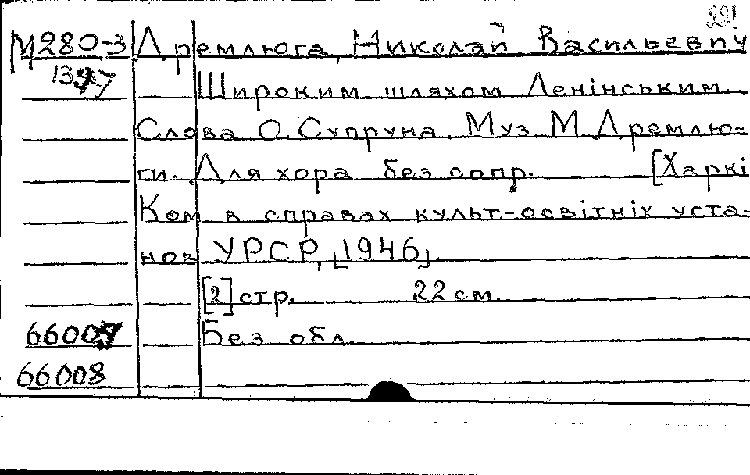 М280-3 Дремлюга, Николай Васильевич
Широким шляхом Ленінським
Слова О. Супруна. Муз. М. Дремлю-
ги. Для хора без сопр. [Харкі
Ком. в справах культ-освітніх уста-
нов УРСР, 1946]
[2] стр. 22 см.
Без обл.
66008